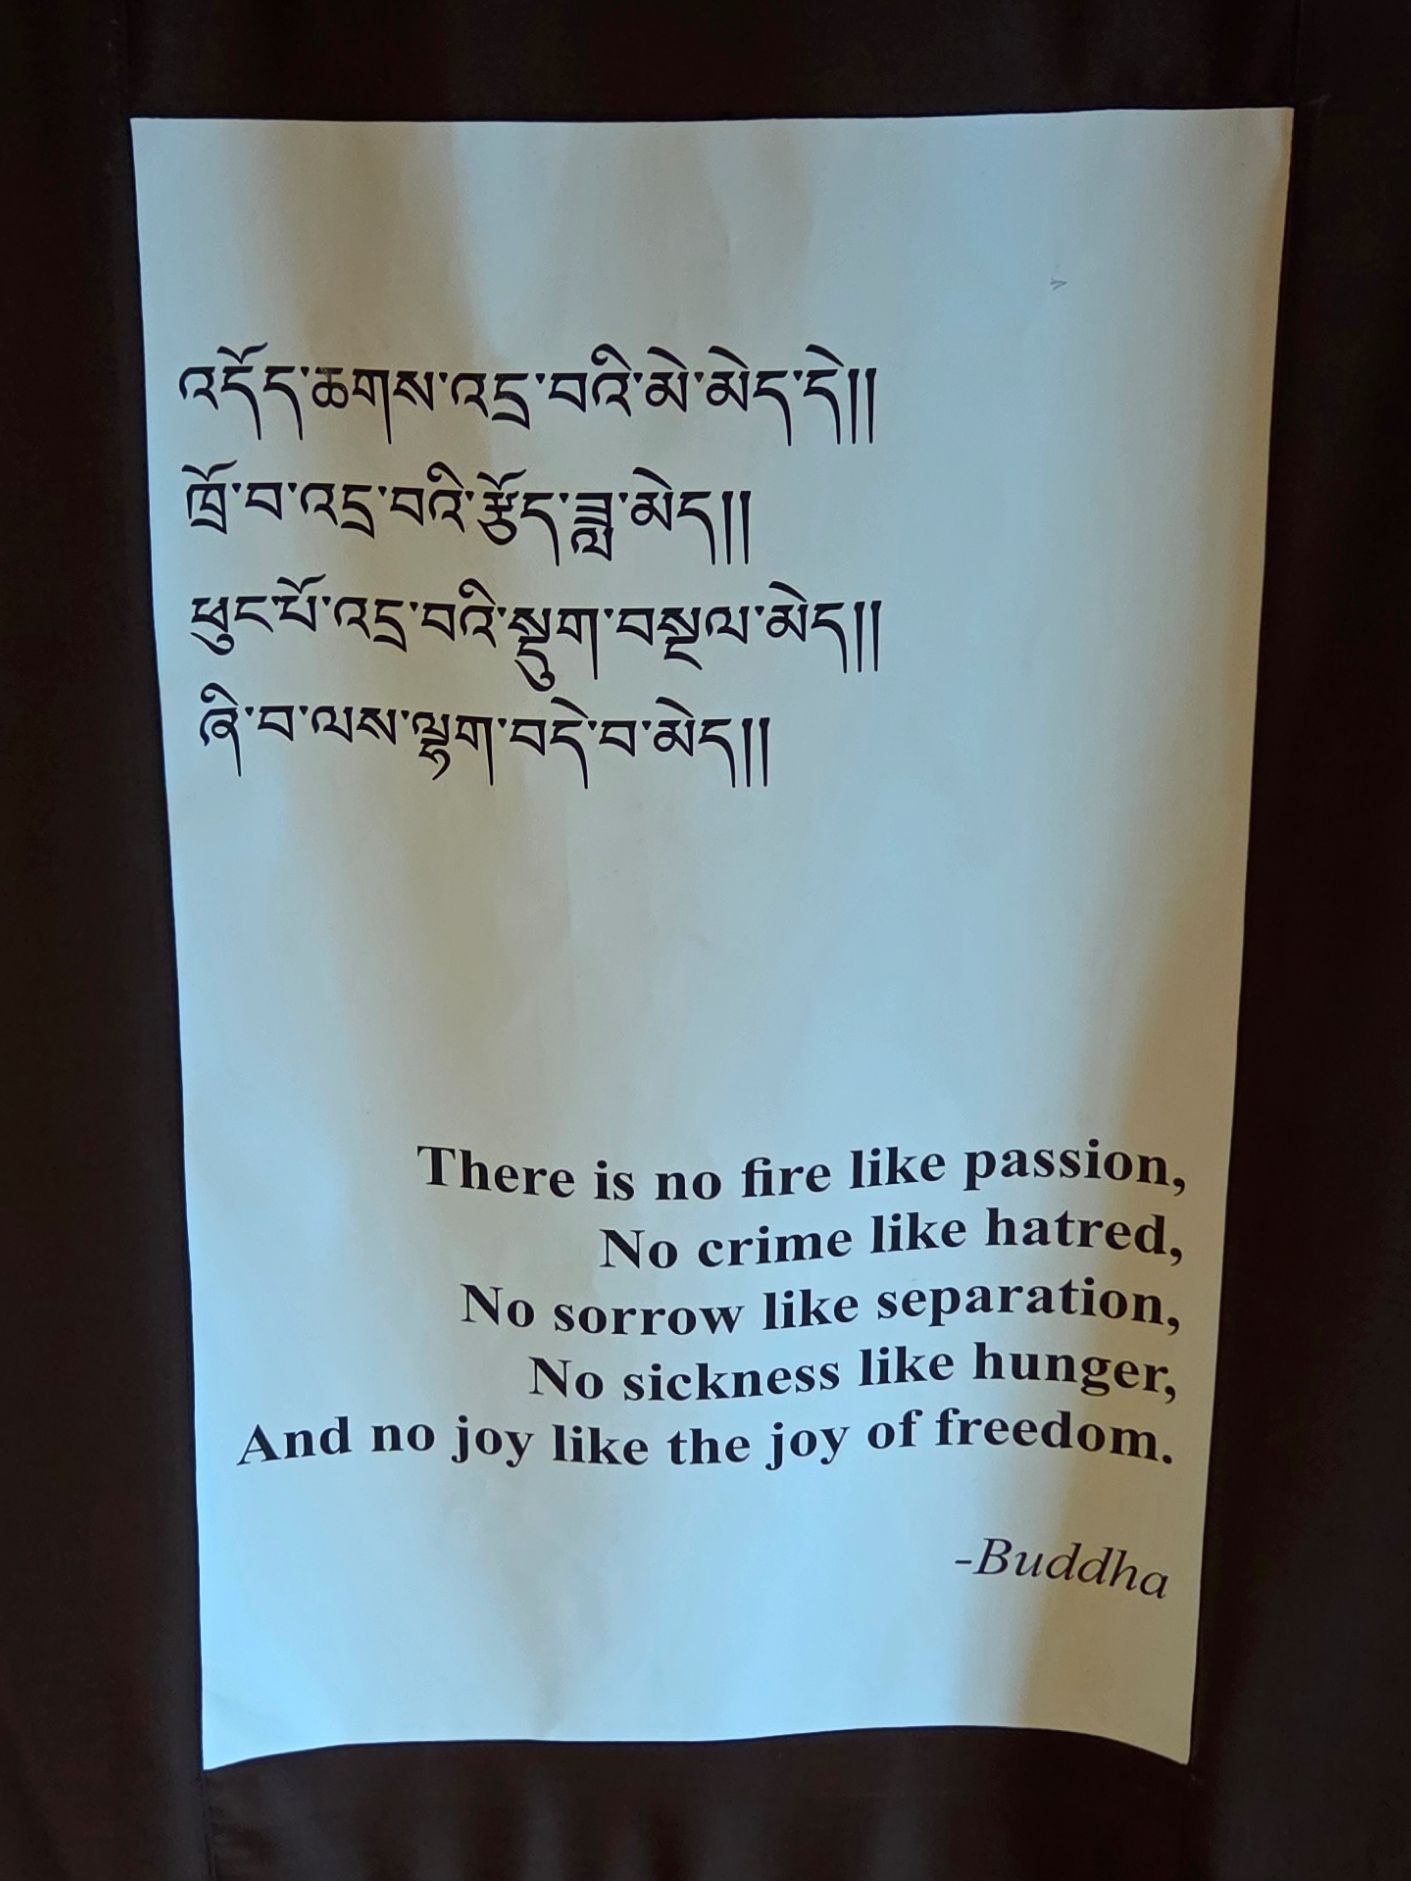 འདོད་ཆགས་འདྲ་བའི་མེ་མེད་དེ།།
ཁྲོ་བ་འདྲ་བའི་རྩོད་ཟླ་མེད།།
ཕུང་པོ་འདྲ་བའི་སྡུག་བསྔལ་མེད།།
ཞི་བ་ལས་ལྷག་བདེ་བ་མེད།།
There is no fire like passion,
No crime like hatred,
No sorrow like separation,
No sickness like hunger,
And no joy like the joy of freedom.
-Buddha